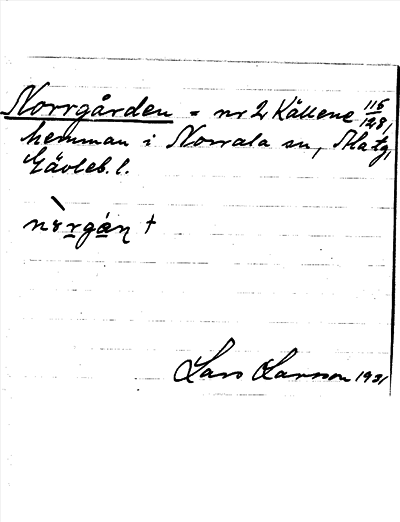 Norrgården = nr 2 Källene 116/128,
hemman i Norrala sn, Hla tg,
Gävleb. l.
nòrgán †
Lars Larsson 1931